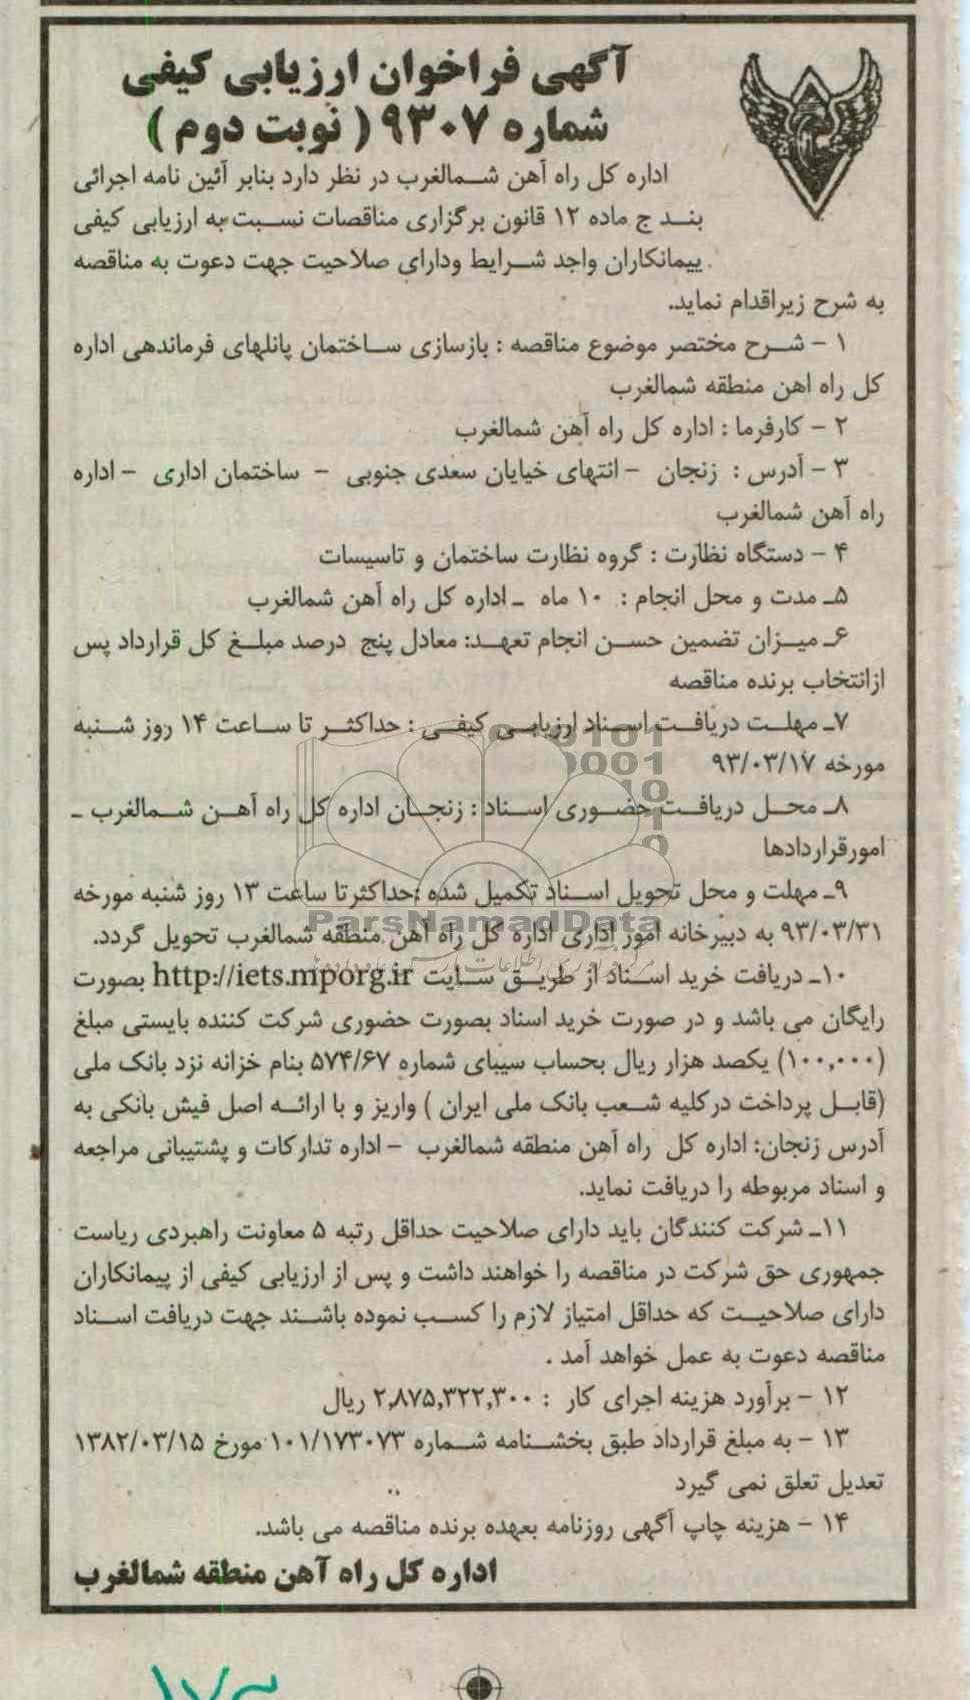 آگهی فراخوان ارزیابی کیفی
شماره ۹۳۰۷ ( نوبت دوم )
اداره کل راه آهن شمالغرب در نظر دارد بنابر آئین نامه اجرائی
بند ج ماده ۱۲ قانون برگزاری مناقصات نسبت به ارزیابی کیفی
پیمانکاران واجد شرایط ودارای صلاحیت جهت دعوت به مناقصه
به شرح زیراقدام نماید.
۱ - شرح مختصر موضوع مناقصه : بازسازی ساختمان پانلهای فرماندهی اداره
کل راه اهن منطقه شمالغرب
۲ - کارفرما : اداره کل راه آهن شمالغرب
۳ - آدرس : زنجان - انتهای خیابان سعدی جنوبی - ساختمان اداری - اداره
راه آهن شمالغرب
۴ - دستگاه نظارت : گروه نظارت ساختمان و تاسیسات
۵ـ مدت و محل انجام : ۱۰ ماه ـ اداره کل راه آهن شمالغرب
۶ـ میزان تضمین حسن انجام تعهد: معادل پنج درصد مبلغ کل قرارداد پس
ازانتخاب برنده مناقصه
۷ـ مهلت دریافت اسناد ارزیابی کیفی : حداکثر تا ساعت ۱۴ روز شنبه
مورخه ۹۳/۰۳/۱۷
۸ـ محل دریافت حضوری اسناد : زنجان اداره کل راه آهن شمالغرب ـ
امورقراردادها
۹ـ مهلت و محل تحویل اسناد تکمیل شده :حداکثرتا ساعت ۱۳ روز شنبه مورخه
۹۳/۰۳/۳۱ به دبیرخانه امور اداری اداره کل راه آهن منطقه شمالغرب تحویل گردد.
۱۰ـ دریافت خرید اسناد از طریق سایت http://iets.mporg.ir بصورت
رایگان می باشد و در صورت خرید اسناد بصورت حضوری شرکت کننده بایستی مبلغ
(۱۰۰,۰۰۰) یکصد هزار ریال بحساب سیبای شماره ۵۷۴/۶۷ بنام خزانه نزد بانک ملی
(قابل پرداخت درکلیه شعب بانک ملی ایران ) واریز و با ارائه اصل فیش بانکی به
آدرس زنجان: اداره کل راه آهن منطقه شمالغرب - اداره تدارکات و پشتیبانی مراجعه
و اسناد مربوطه را دریافت نماید.
۱۱ـ شرکت کنندگان باید دارای صلاحیت حداقل رتبه ۵ معاونت راهبردی ریاست
جمهوری حق شرکت در مناقصه را خواهند داشت و پس از ارزیابی کیفی از پیمانکاران
دارای صلاحیت که حداقل امتیاز لازم را کسب نموده باشند جهت دریافت اسناد
مناقصه دعوت به عمل خواهد آمد .
۱۲ - برآورد هزینه اجرای کار : ۲,۸۷۵,۳۲۲,۳۰۰ ریال
۱۳ - به مبلغ قرارداد طبق بخشنامه شماره ۱۰۱/۱۷۳۰۷۳ مورخ ۱۳۸۲/۰۳/۱۵
تعدیل تعلق نمی گیرد
۱۴ - هزینه چاپ آگهی روزنامه بعهده برنده مناقصه می باشد.
اداره کل راه آهن منطقه شمالغرب
ParsNamadData